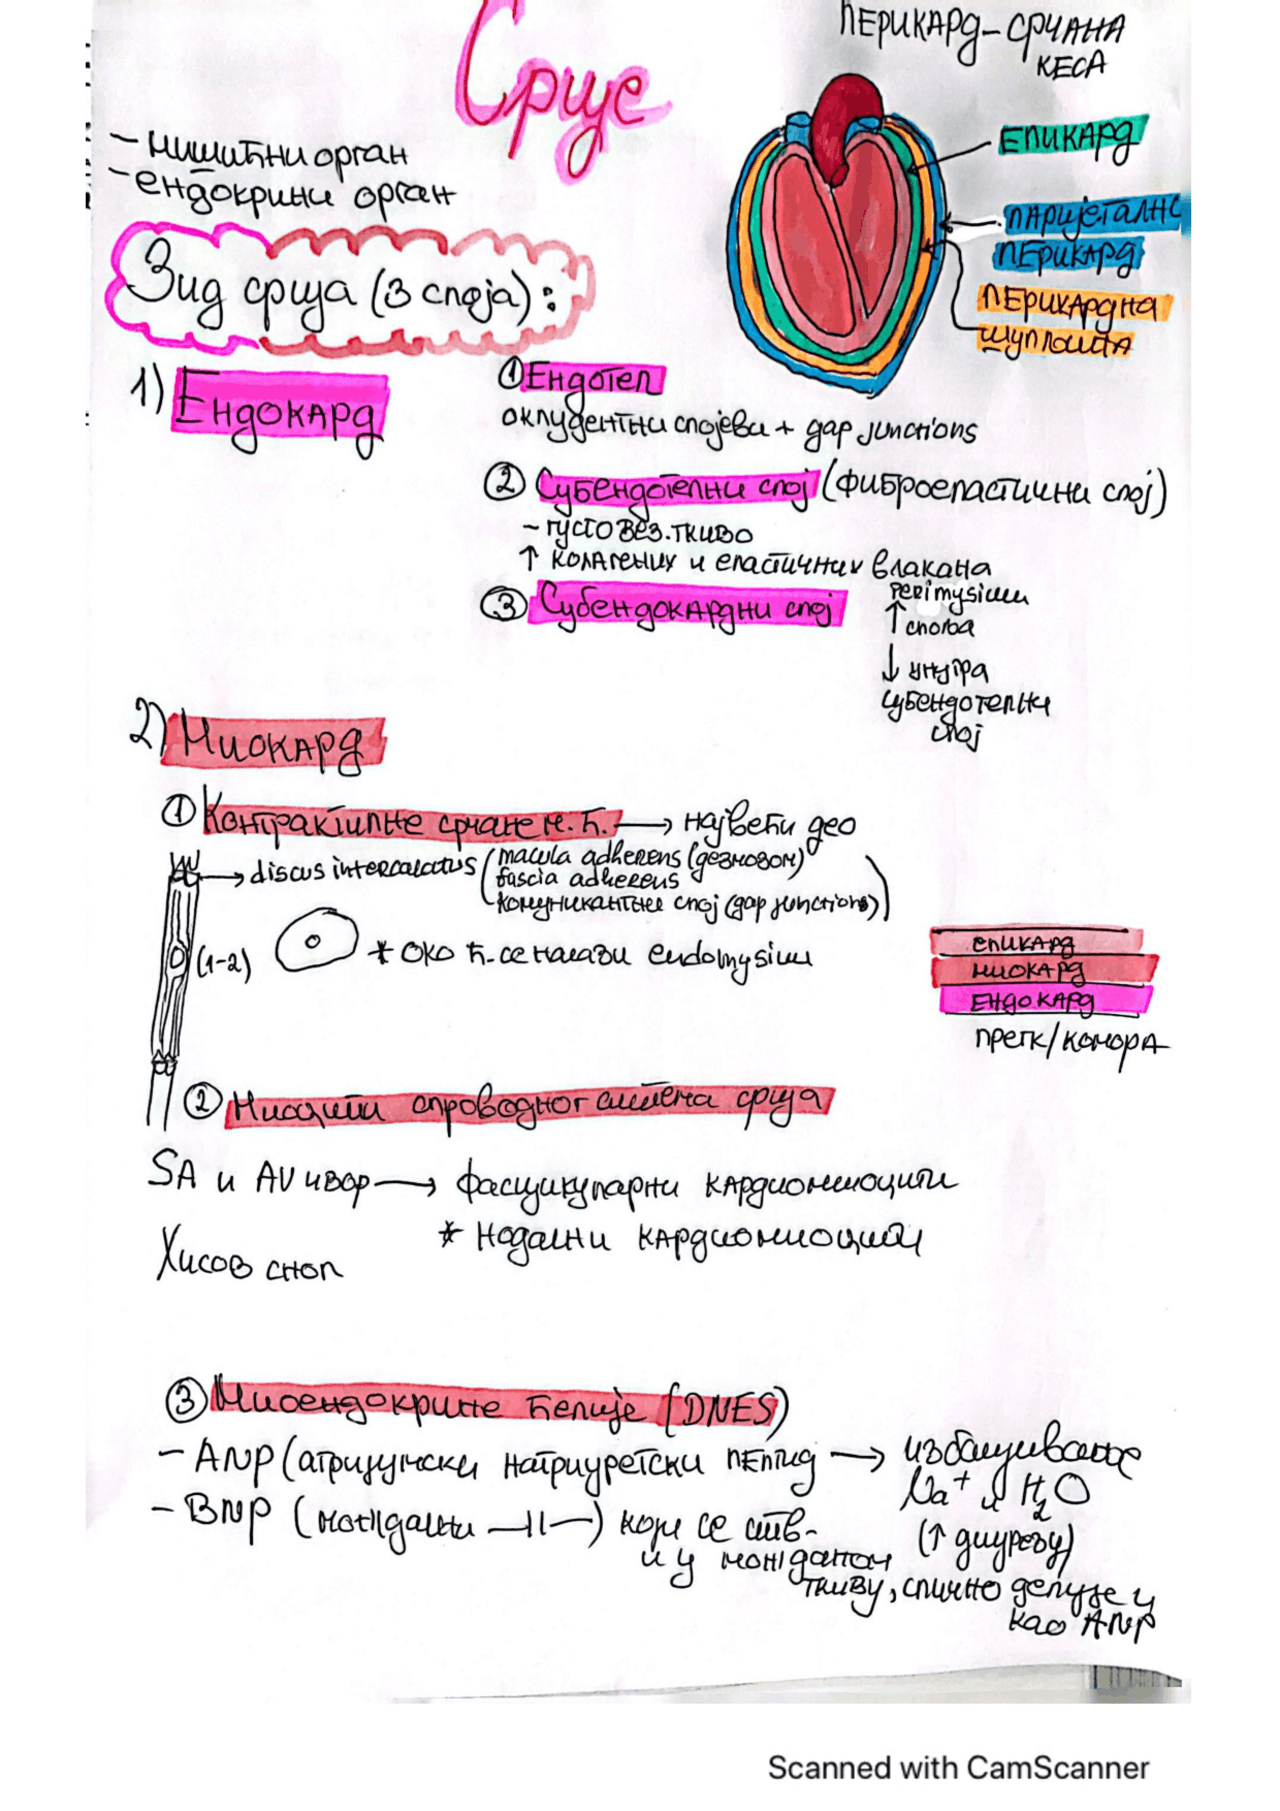 Срце
ПЕРИКАРД - СРЧАНА
КЕСА
- мишићни орган
- ендокрини орган
ЕПИКАРД
ПАРИЈЕТАЛНИ
ПЕРИКАРД
ПЕРИКАРДНА
ШУПЉИНА
Зид срца (3 слоја):
1) ЕНДОКАРД
① Ендотел
оклудентни спојеви + gap junctions
② Субендотелни слој (фиброеластични слој)
- густо вез. ткиво
↑ колагених и еластичних влакана
③ Субендокардни слој
perimysium
↑ споља
↓ унутра
субендотелни
слој
2) Миокард
① Контрактилне срчане м. ћ. → највећи део
→ discus intercalatus (macula adherens (дезмозом)
fascia adherens
комуникантни спој (gap junctions))
(1-2)
* око ћ. се налази endomysium
ЕПИКАРД
МИОКАРД
ЕНДОКАРД
претк/комора
② Миоцити спроводног система срца
SA и AV чвор → фасцикуларни кардиомиоцити
* Нодални кардиомиоцити
Хисов сноп
③ Миоендокрине ћелије (DNES)
- ANP (атријумски натриуретски пептид → избацивање
Na⁺ и H₂O
(↑ диурезу)
- BNP (мождани —||—) који се ств.
и у можданом
ткиву, слично делује
као ANP